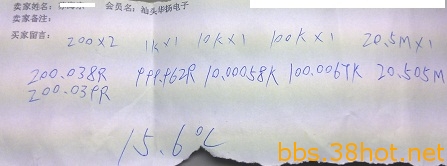 卖家姓名: 会员名: 汕头华扬电子
卖家备注:
买家留言:
200×2 1k×1 10k×1 100k×1 20.5M×1
200.038R 999.962R 10.00058K 100.0067K 20.505M
200.039R
15.6℃
bbs.38hot.net